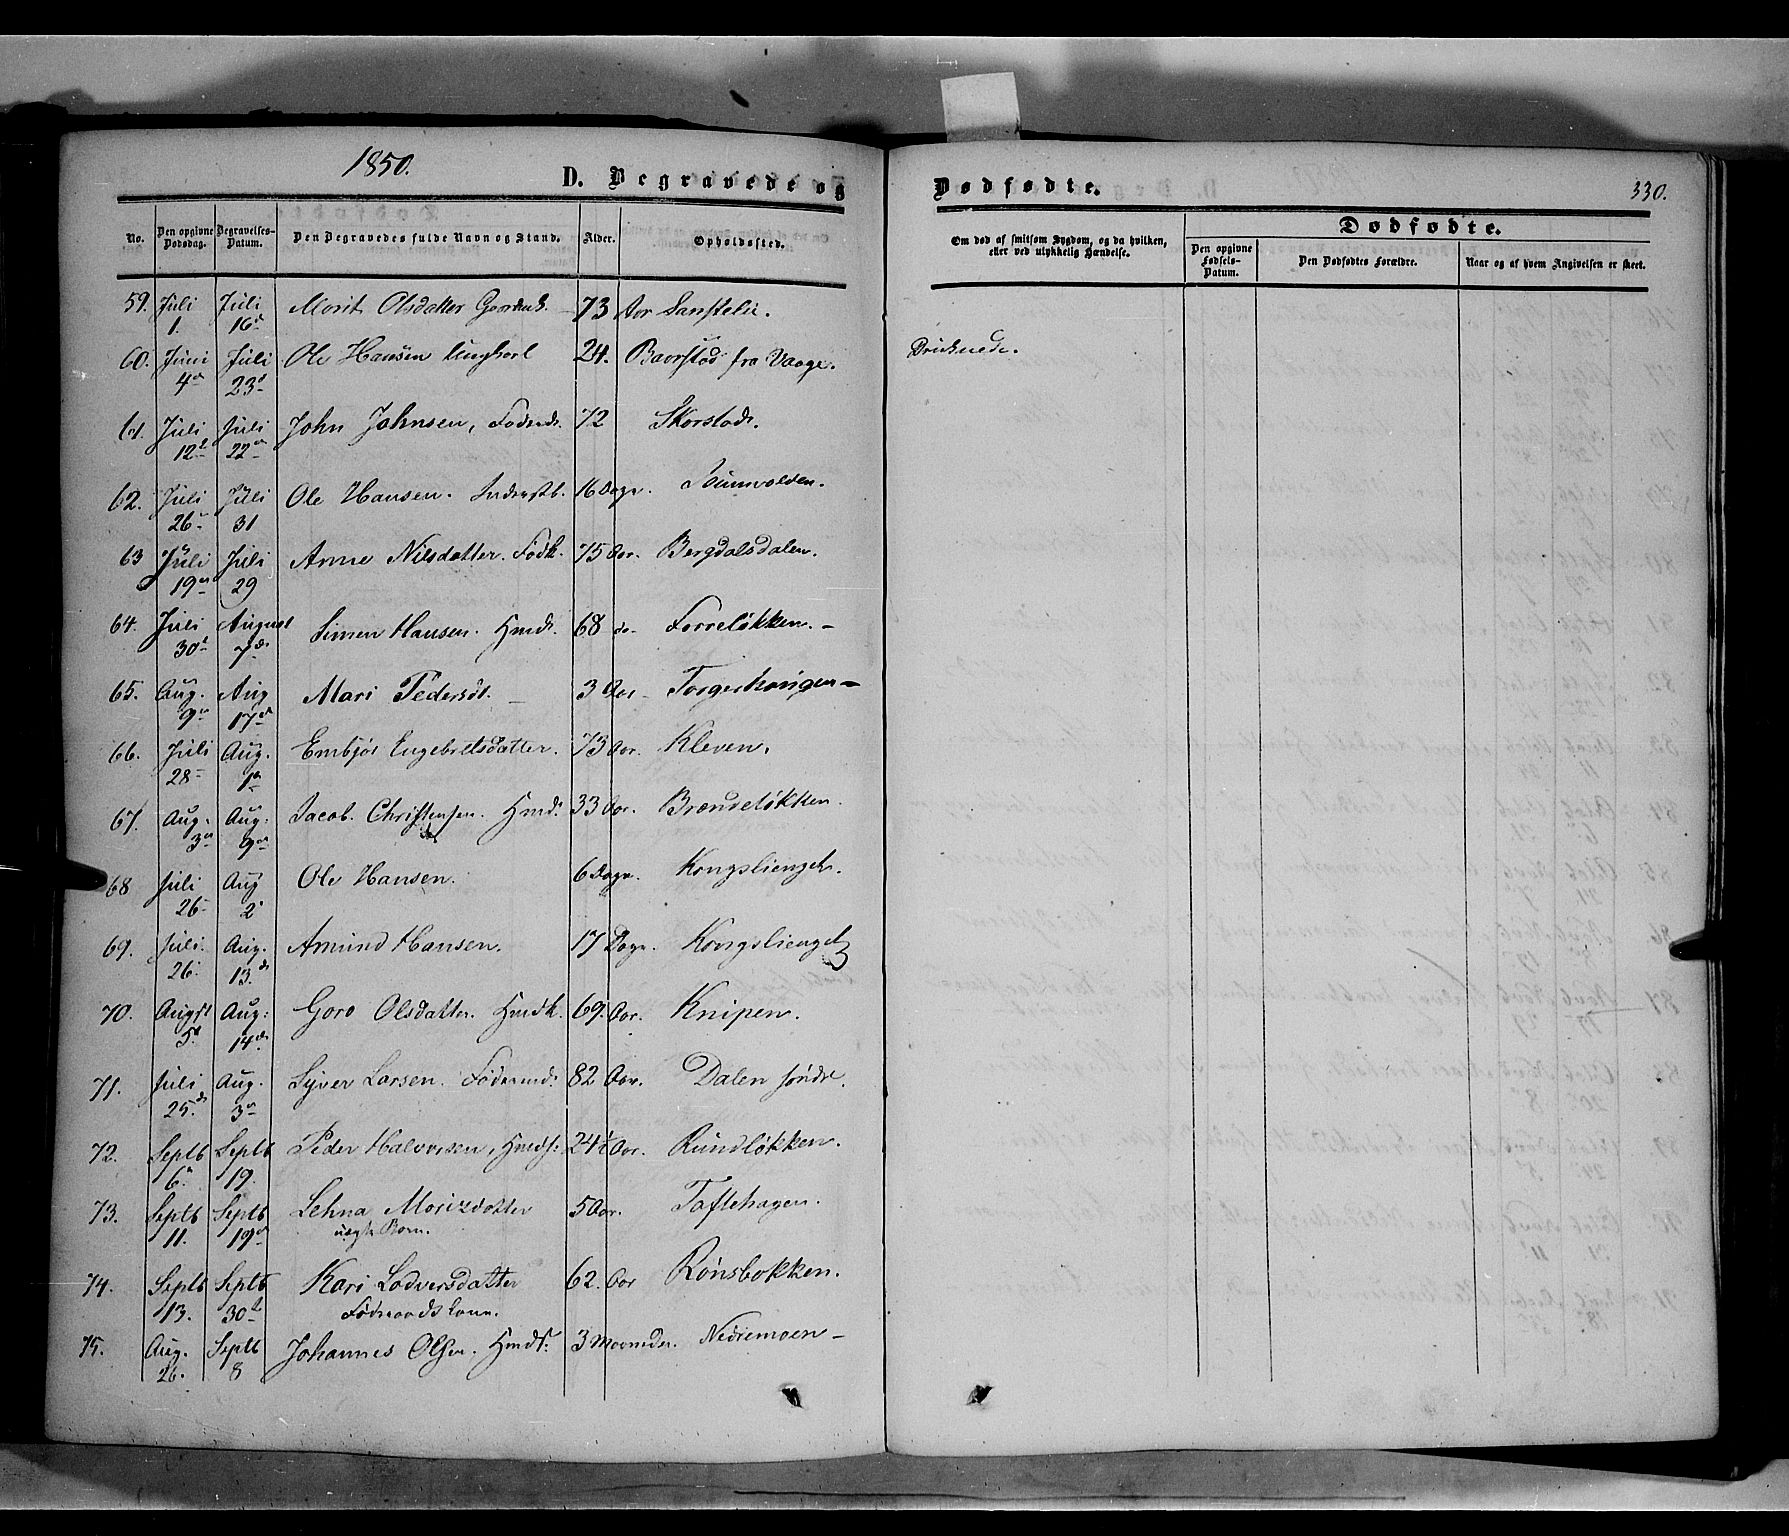 1850.
D. Begravede og
Dødfødte.
330.
No.
Den opgivne Dødsdag.
Begravelses-Datum.
Den Begravedes fulde Navn og Stand.
Alder.
Opholdssted.
Om død af smitsom Sygdom, og da hvilken,
eller ved ulykkelig Hændelse.
Dødfødte.
Den opgivne Fødsels-Datum.
Den Dødfødtes Forældre.
Naar og af hvem Angivelsen er skeet.
59. Juli Juli Marit Olsdatter 73 Aar
1. 16d
60. Juni Juli Ole Hansen Ungkarl 24. Baarstad fra Vaage. Druknede.
4d 23d
61. Juli Juli John Johnsen, 72 Skorstad.
12t 22d
62. Juli Juli Ole Hansen. 16 Dage.
26 31
63 Juli Juli Anne Nilsdatter. Fødk. 75 Aar. Bergdalsdalen.
19 29
64. Juli August Simen Hansen. Hmd. 68 do. Forreløkken. –
30 7de
65. Aug. Aug Mari Pedersdt. 3 Aar Torgerhougen –
9 17d
66. Juli Aug. Embjør Engebretsdatter. 73 Aar. Kleven.
28 1
67. Aug. Aug. Jacob Christensen. Hmd. 33 Aar. Brændeløkken.
3 9
68 Juli Aug Ole Hansen. 6 Dage. Kongslienget.
26 2
69. Juli. Aug. Amund Hansen. 17 Dage. Kongslienget
26. 13.d
70. August Aug: Goro Olsdatter. Hmdk. 69. Aar. Knipen.
5 14d
71. Juli Aug. Syver Larsen. 82 Aar. Dalen søndr.
25.d 3
72. Septb Septb Peder Halvorsen, Hmds: 24½ Aar. Rundløkken.
6 19.
73. Septb Septb Lehna Morizdatter 5 Aar. Toftehagen.
11. 19d uægte Barn.
74. Septb Septb Kari Lodversdatter 62. Aar Rønsbakken.
13. 30t
75. Aug. Septb Johannes Olsen. Hmds: 3 Maaneder. Nedremoen –
26. 8